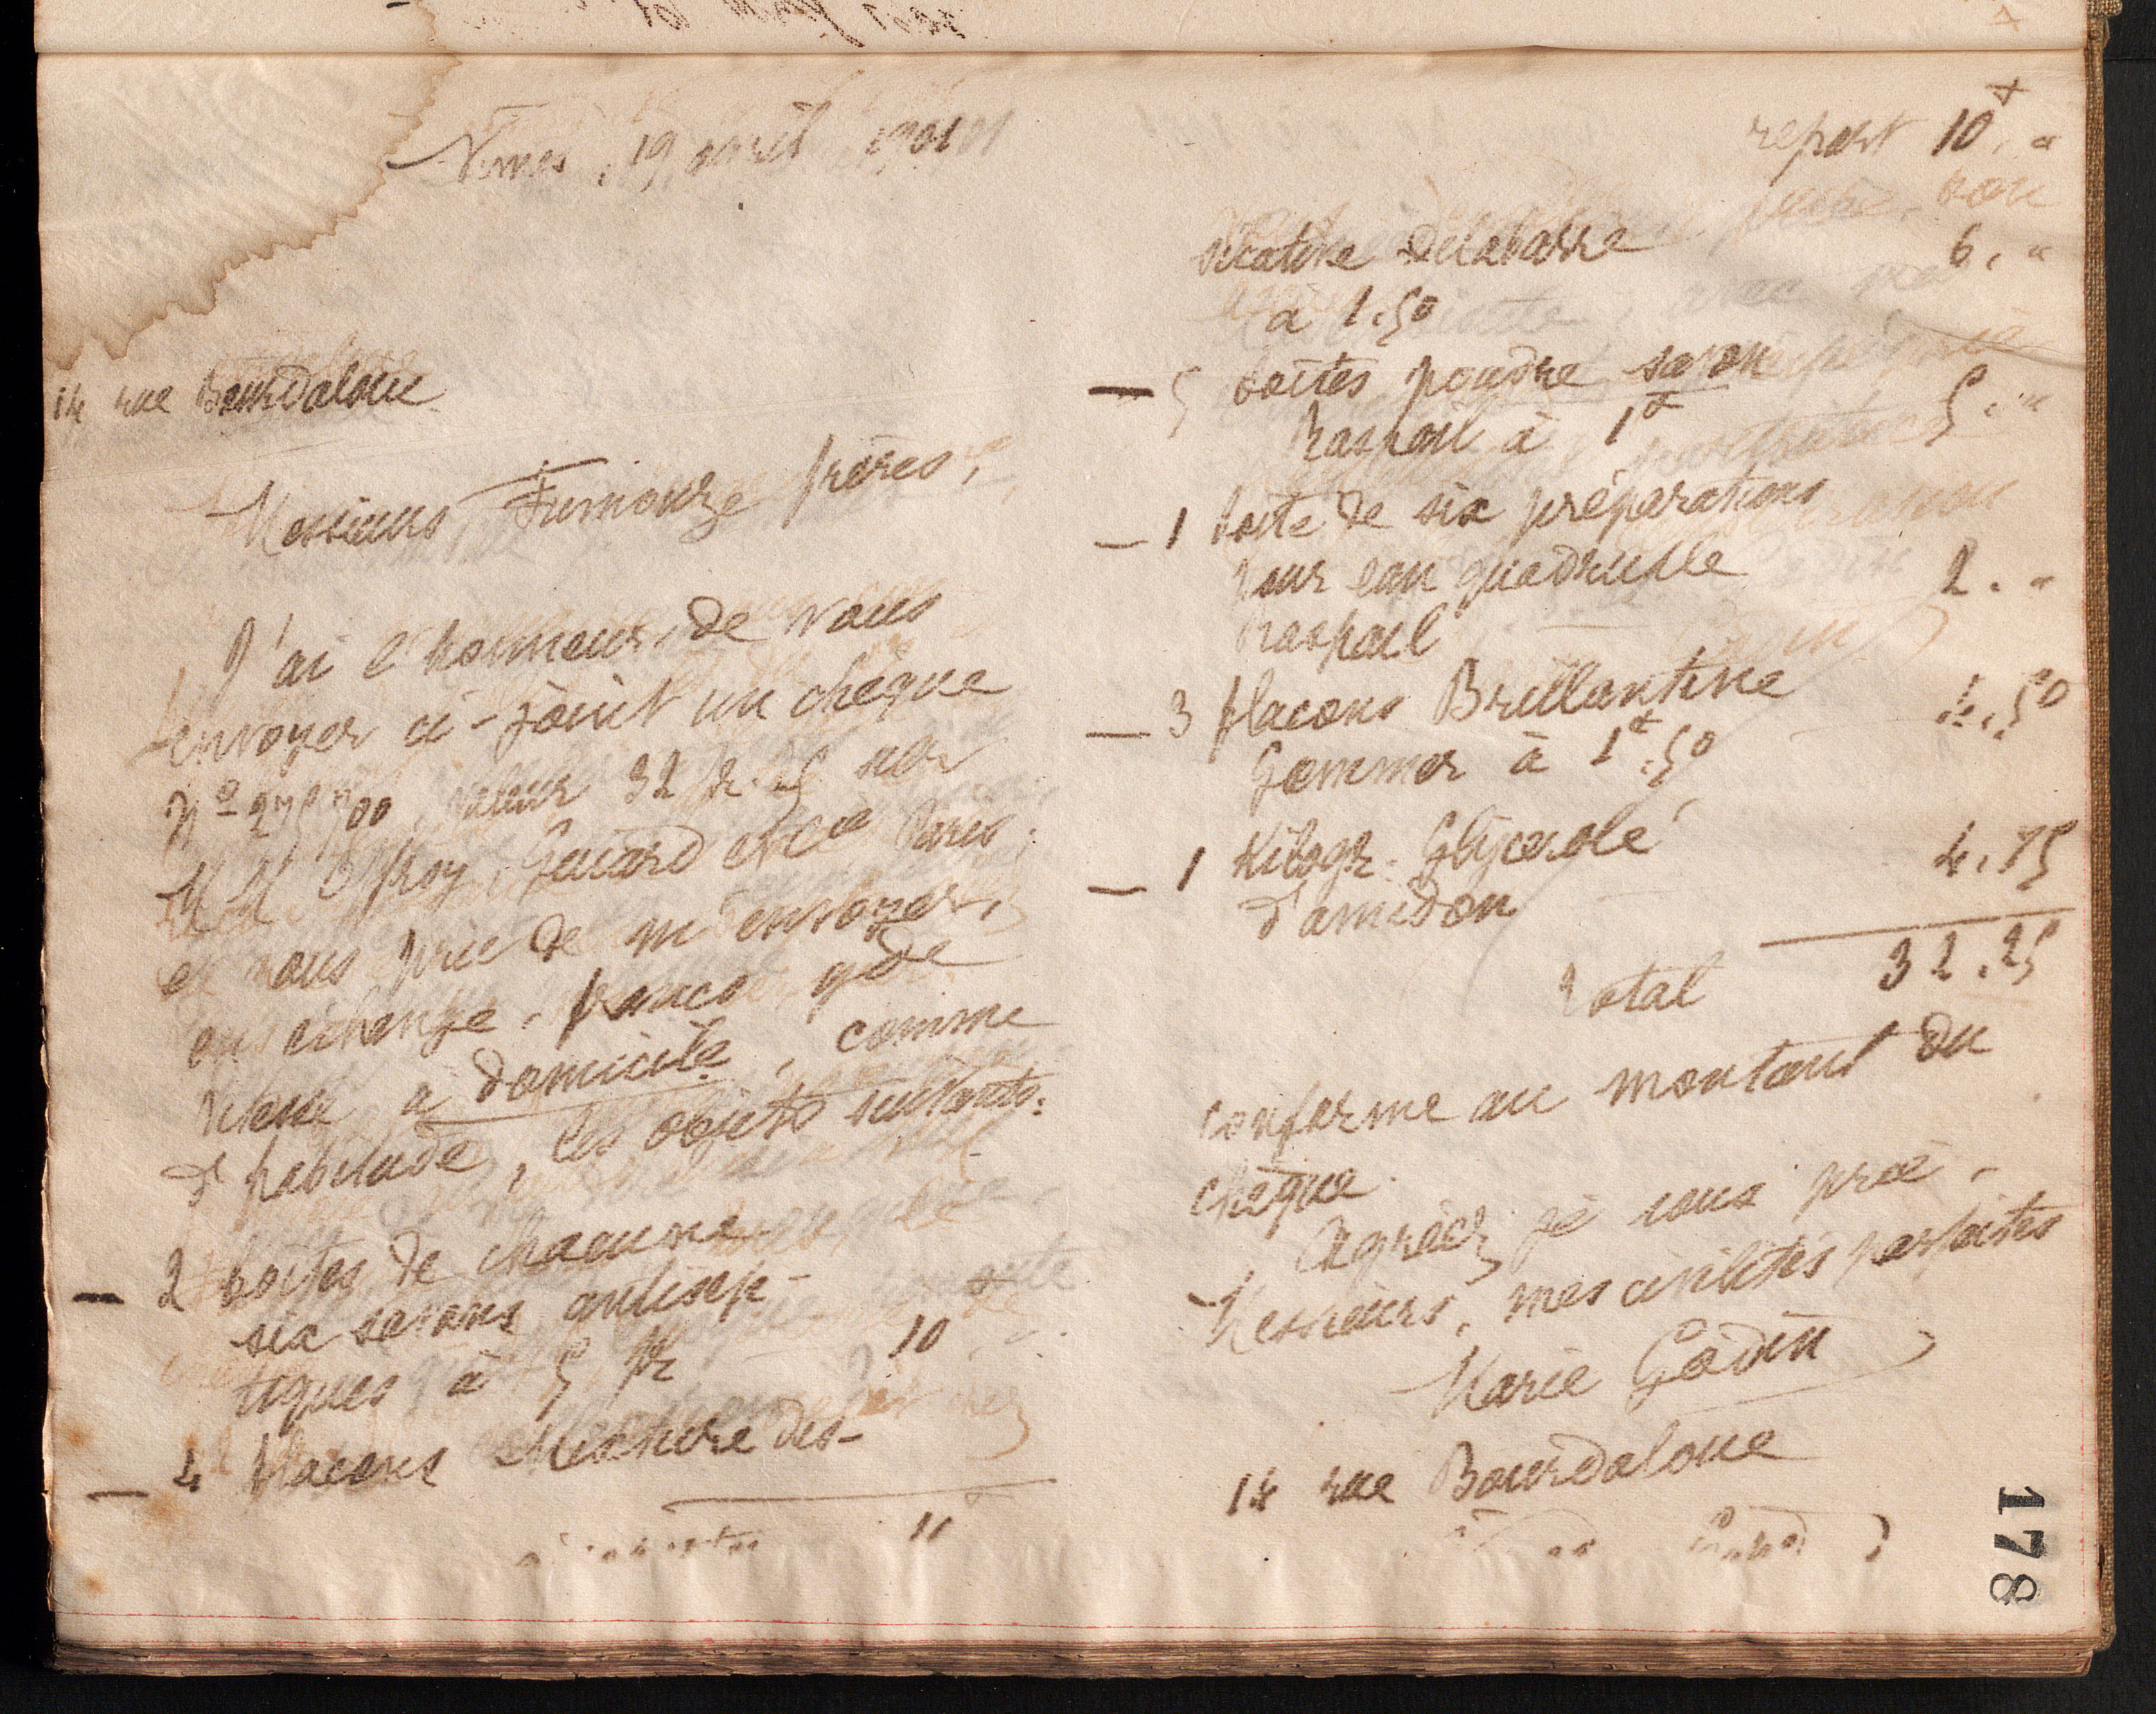 Nîmes, 19 avril 1901
14 rue Bourdaloue
Messieurs Fumouze frères,
J'ai l'honneur de vous
envoyer ci-joint un chèque
N° valeur 32 fr. 25 sur
MM Offroy, Guiard et Cie Paris
et vous prie de m'envoyer,
en échange, franco gde
vitesse à domicile, comme
d'habitude, les objets suivants:
— 2 boîtes de chacune
six savons antisep-
tiques à 5 fr 10f
— 4 flacons Mixture des-
10f
report 10f, "
sicative Delabarre 6, "
à 1.50
— 5 boîtes poudre savon
Raspail à 1f 5, "
— 1 boîte de six préparations
pour eau quadruple 2. "
Raspail
— 3 flacons Brillantine 4,50
Gommer à 1f,50
— 1 Kilogr. Glycerolé 4,75
d'amidon
Total 32,25
conforme au montant du
chèque.
Agréez, je vous prie,
Messieurs, mes civilités parfaites
Marie Godin
14 rue Bourdaloue
178